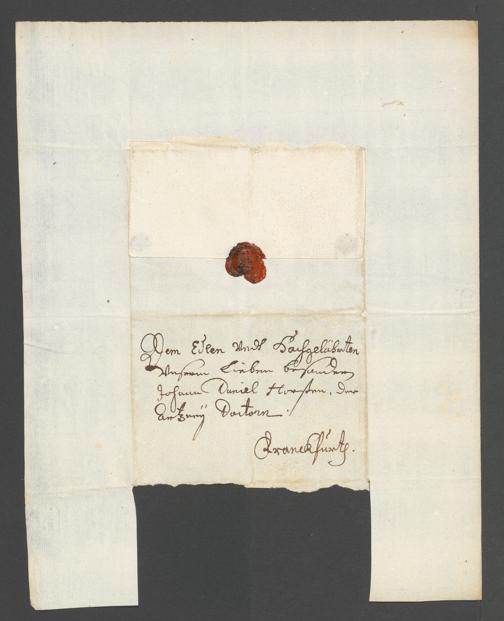 Dem Edlen Undt Hochgelährten
Unserm Lieben besondern
Johann Daniel Horsten, der
Artzney Doctorn.
Franckfurth.